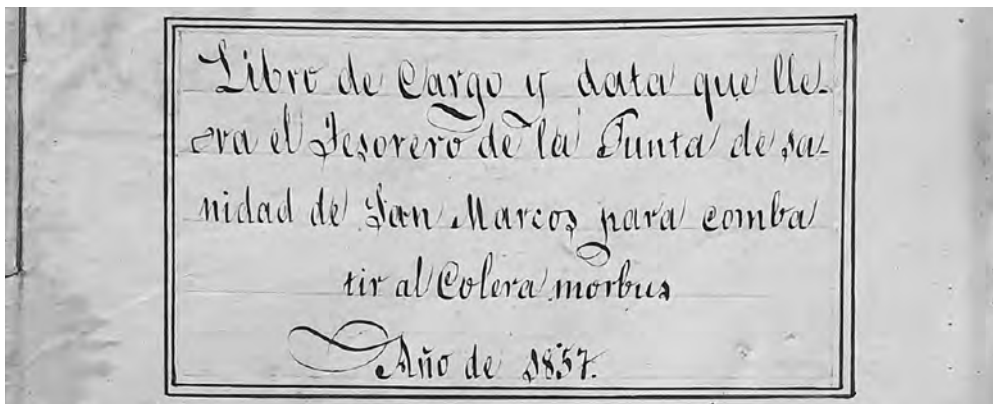 Libro de Cargo y data que lle-
va el Tesorero de la Junta de sa-
nidad de San Marcos para comba
tir al Colera morbus
Año de 1857.